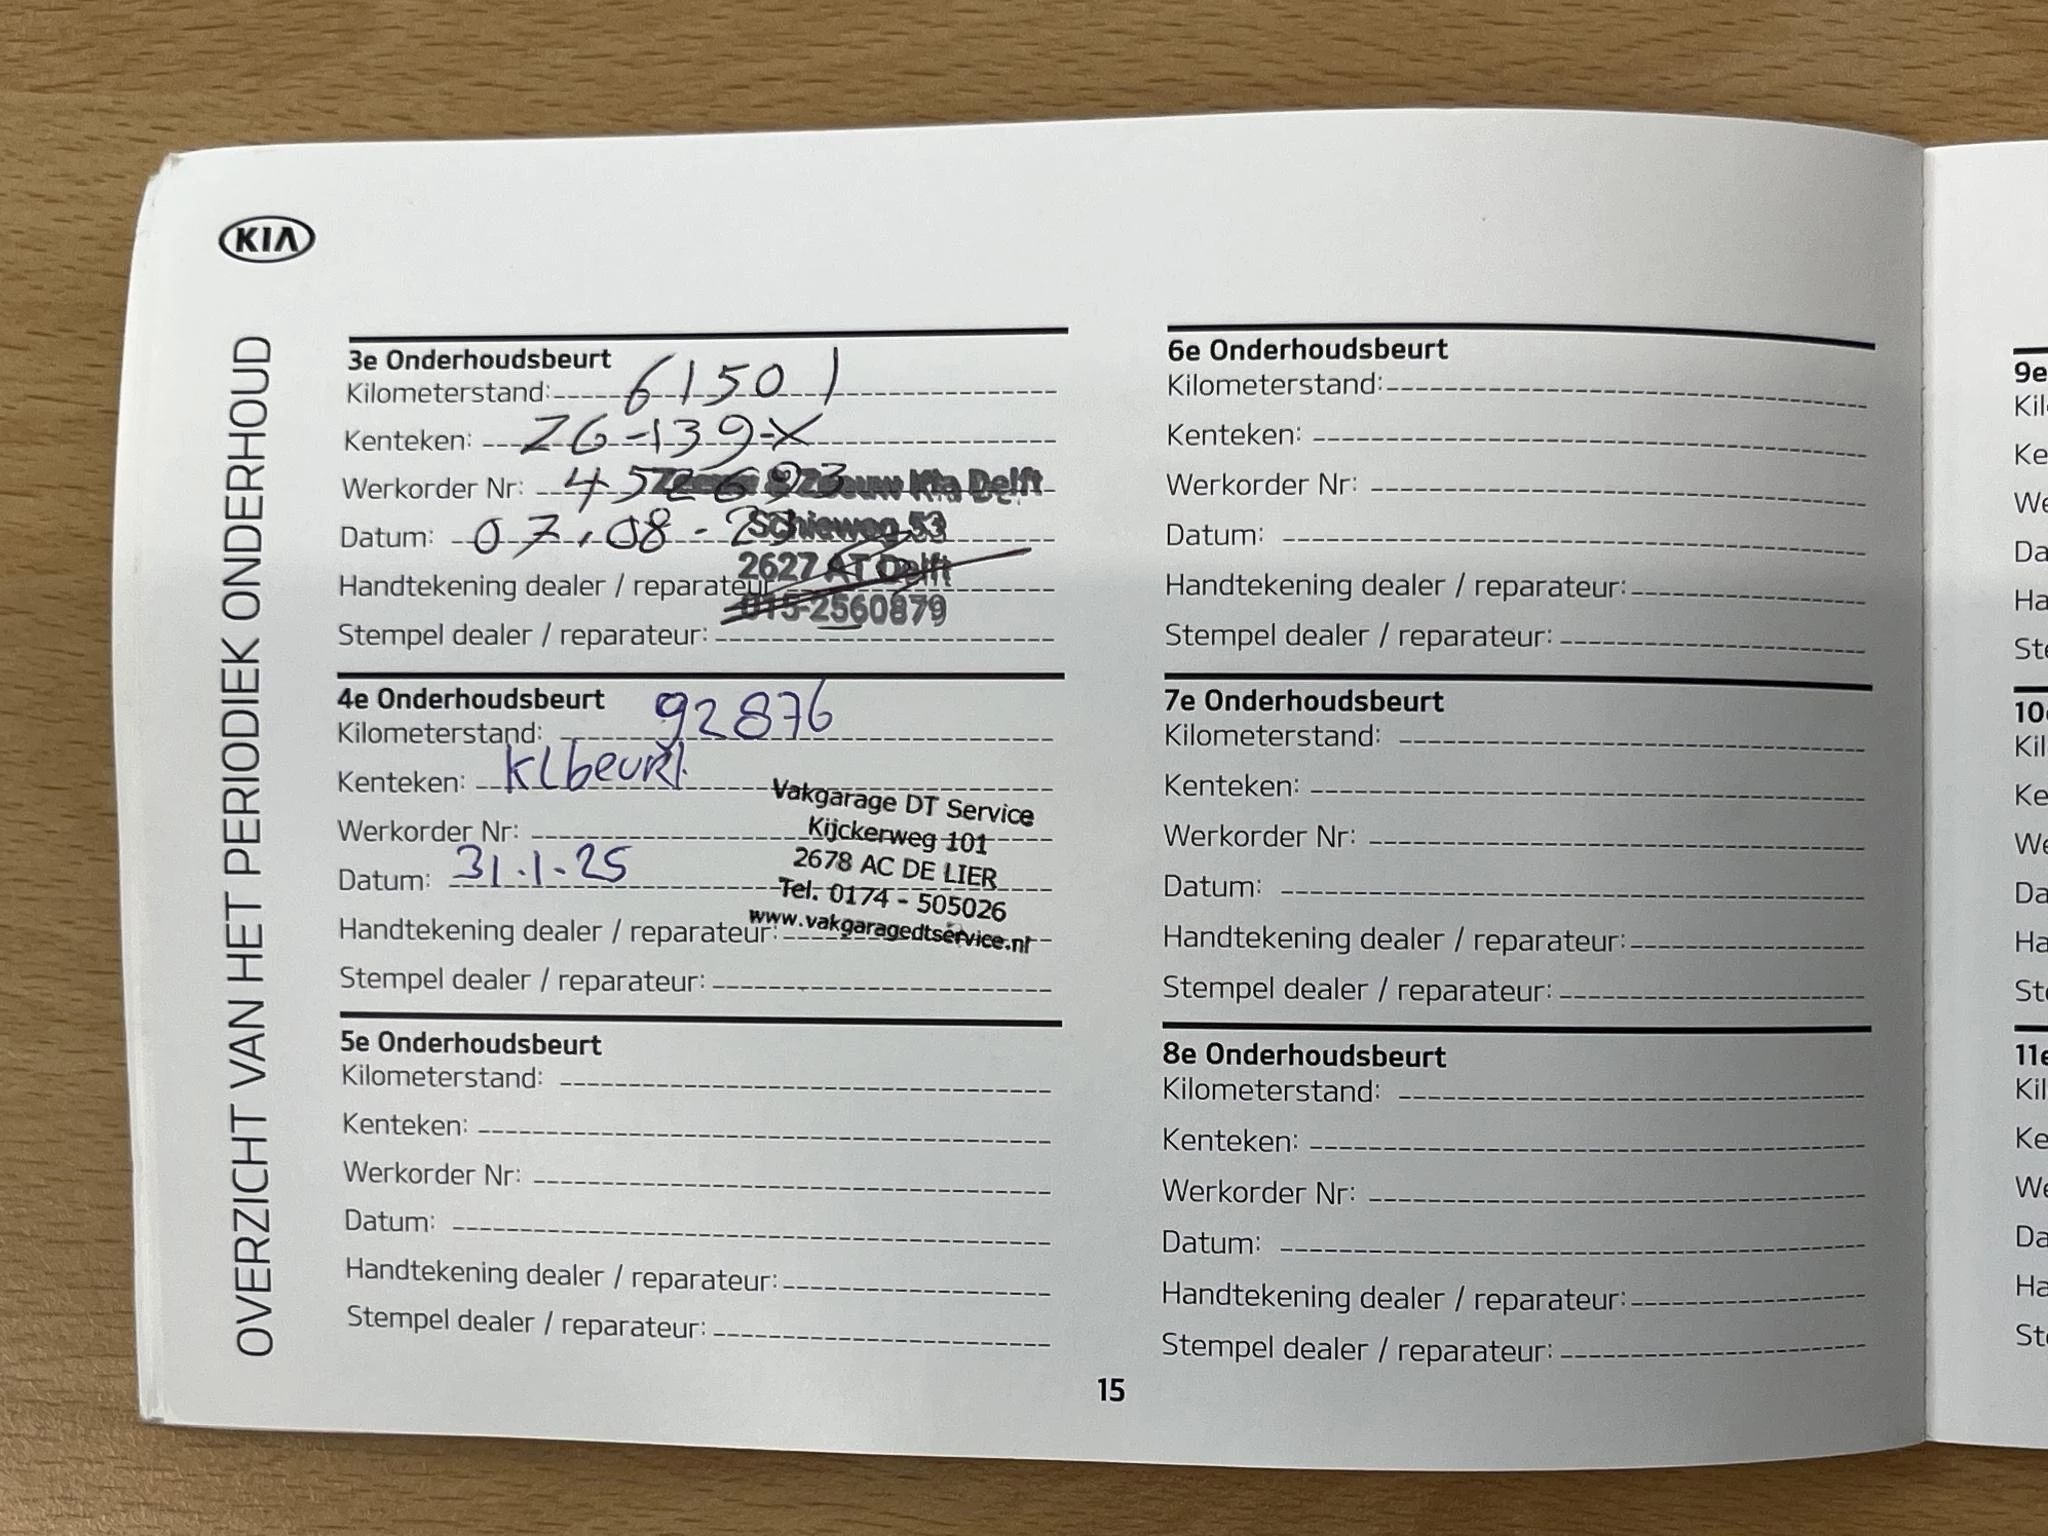 KIA
OVERZICHT VAN HET PERIODIEK ONDERHOUD
3e Onderhoudsbeurt
Kilometerstand: 61501
Kenteken: ZG-139-X
Werkorder Nr: 452693
Zeeuw & Zeeuw Kia Delft
Datum: 07.08-
Schieweg 53
2627 AT Delft
Handtekening dealer / reparateur:
015-2560879
Stempel dealer / reparateur:
4e Onderhoudsbeurt
Kilometerstand: 92876
Kenteken: Klbeurt.
Vakgarage DT Service
Werkorder Nr:
Kijckerweg 101
2678 AC DE LIER
Datum: 31.1.25
Tel. 0174 - 505026
Handtekening dealer / reparateur:
www.vakgaragedtservice.nl
Stempel dealer / reparateur:
5e Onderhoudsbeurt
Kilometerstand:
Kenteken:
Werkorder Nr:
Datum:
Handtekening dealer / reparateur:
Stempel dealer / reparateur:
6e Onderhoudsbeurt
Kilometerstand:
Kenteken:
Werkorder Nr:
Datum:
Handtekening dealer / reparateur:
Stempel dealer / reparateur:
7e Onderhoudsbeurt
Kilometerstand:
Kenteken:
Werkorder Nr:
Datum:
Handtekening dealer / reparateur:
Stempel dealer / reparateur:
8e Onderhoudsbeurt
Kilometerstand:
Kenteken:
Werkorder Nr:
Datum:
Handtekening dealer / reparateur:
Stempel dealer / reparateur:
15
9e
Kil
Ke
We
Da
Ha
Ste
10e
Kil
Ke
We
Da
Ha
Ste
11e
Kil
Ke
We
Da
Ha
Ste